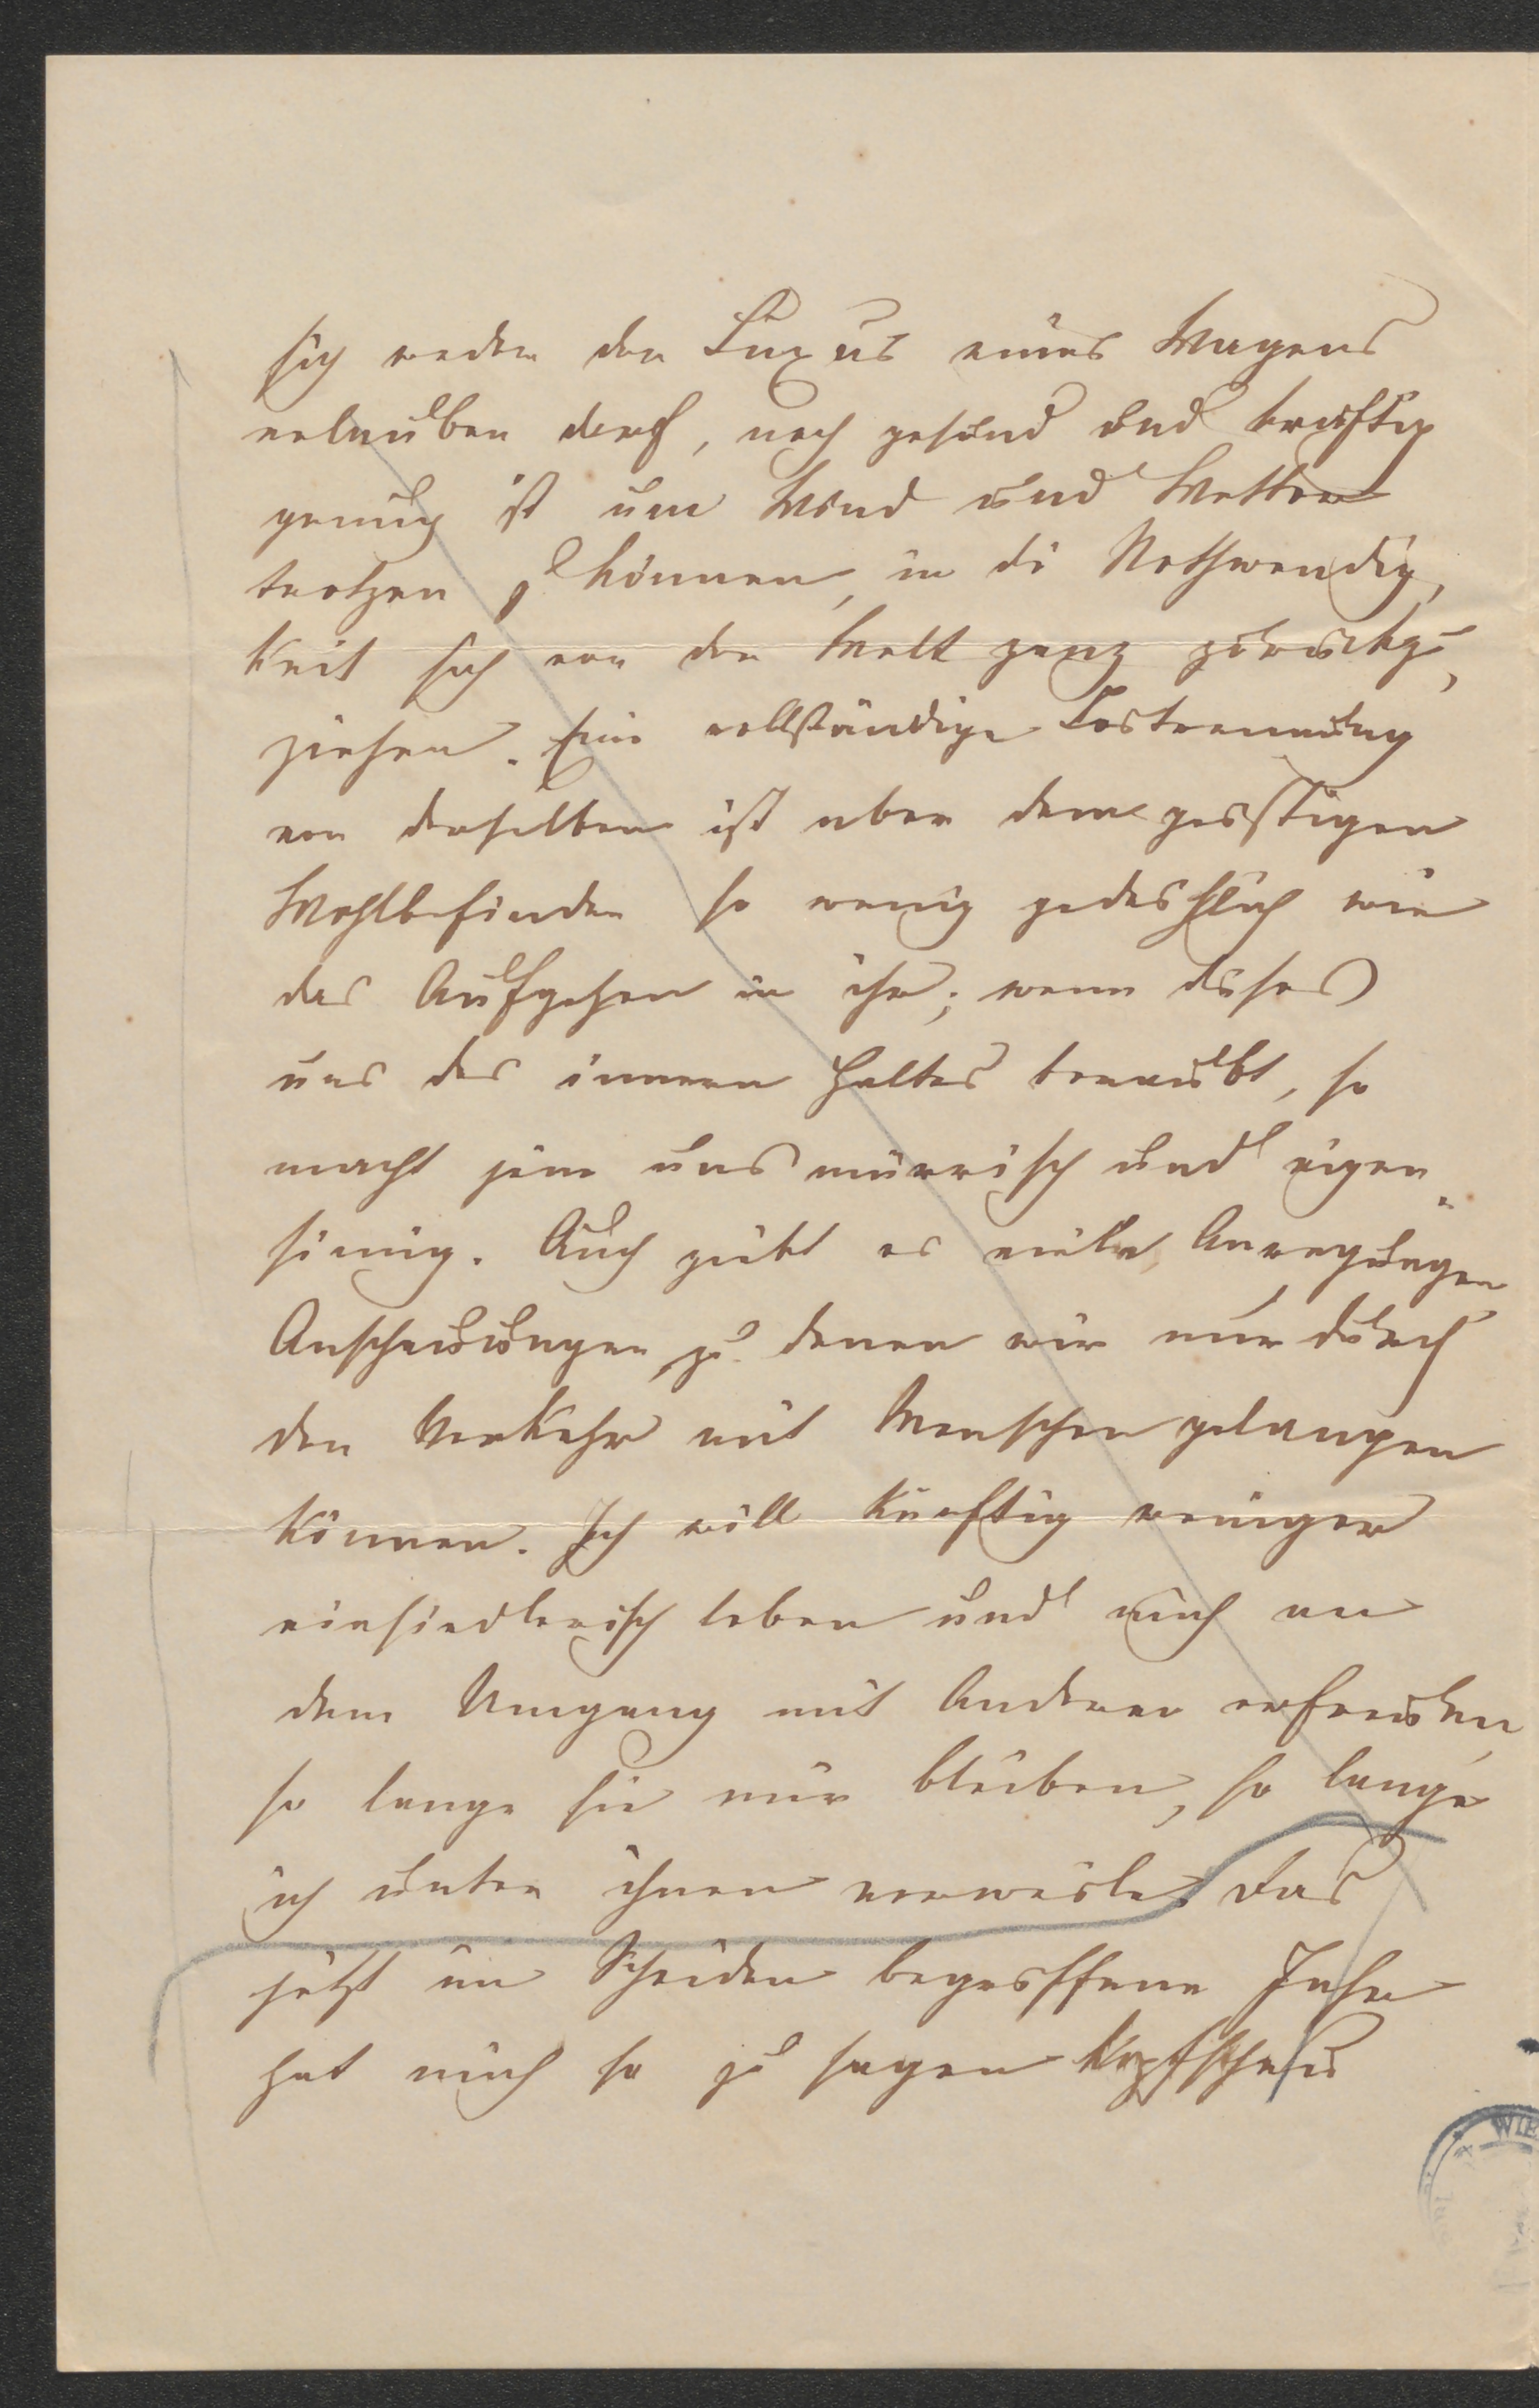 sich weder den Luxus eines Wagens
erlauben darf, noch gesund und kräftig
genug ist um Wind und Wetter
trotzen zu können, in die Nothwendig,
keit sich von der Welt ganz zurückzu,
ziehen. Eine vollständige Lostrennung
von derselben ist aber dem geistigen
Wohlbefinden so wenig gedeihlich wie
das Aufgehen in ihr; wenn dieses
uns des innern Haltes beraubt, so
macht jene uns mürrisch und eigen„
sinnig. Auch giebt es viele Anregungen
Anschauungen zu denen wir nur durch
den Verkehr mit Menschen gelangen
können. Ich will künftig weniger
einsiedlerisch leben und mich an
dem Umgang mit Anderen erfreuen,
so lange sie mir bleiben, so lange
ich unter ihnen verweile. Das
jetzt im Scheiden begriffene Jahr
hat mich so zu sagen kopfscheu
WIE